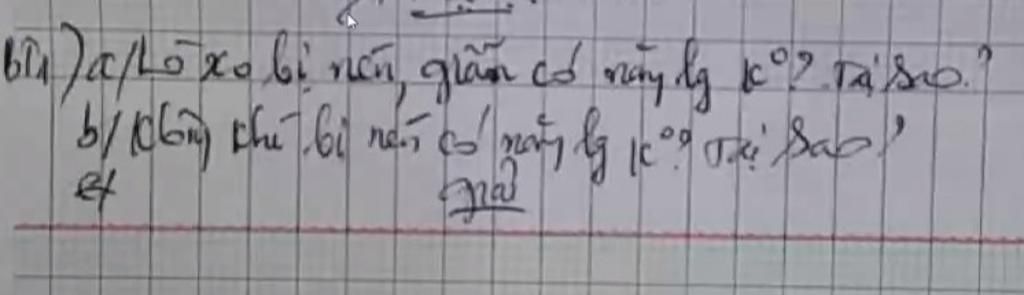 BT1) a/ Lò xo bị nén, giãn có năng lg k°? Tại sao?
b/ Không khí bị nén có năng lg k°? Tại sao?
Giải